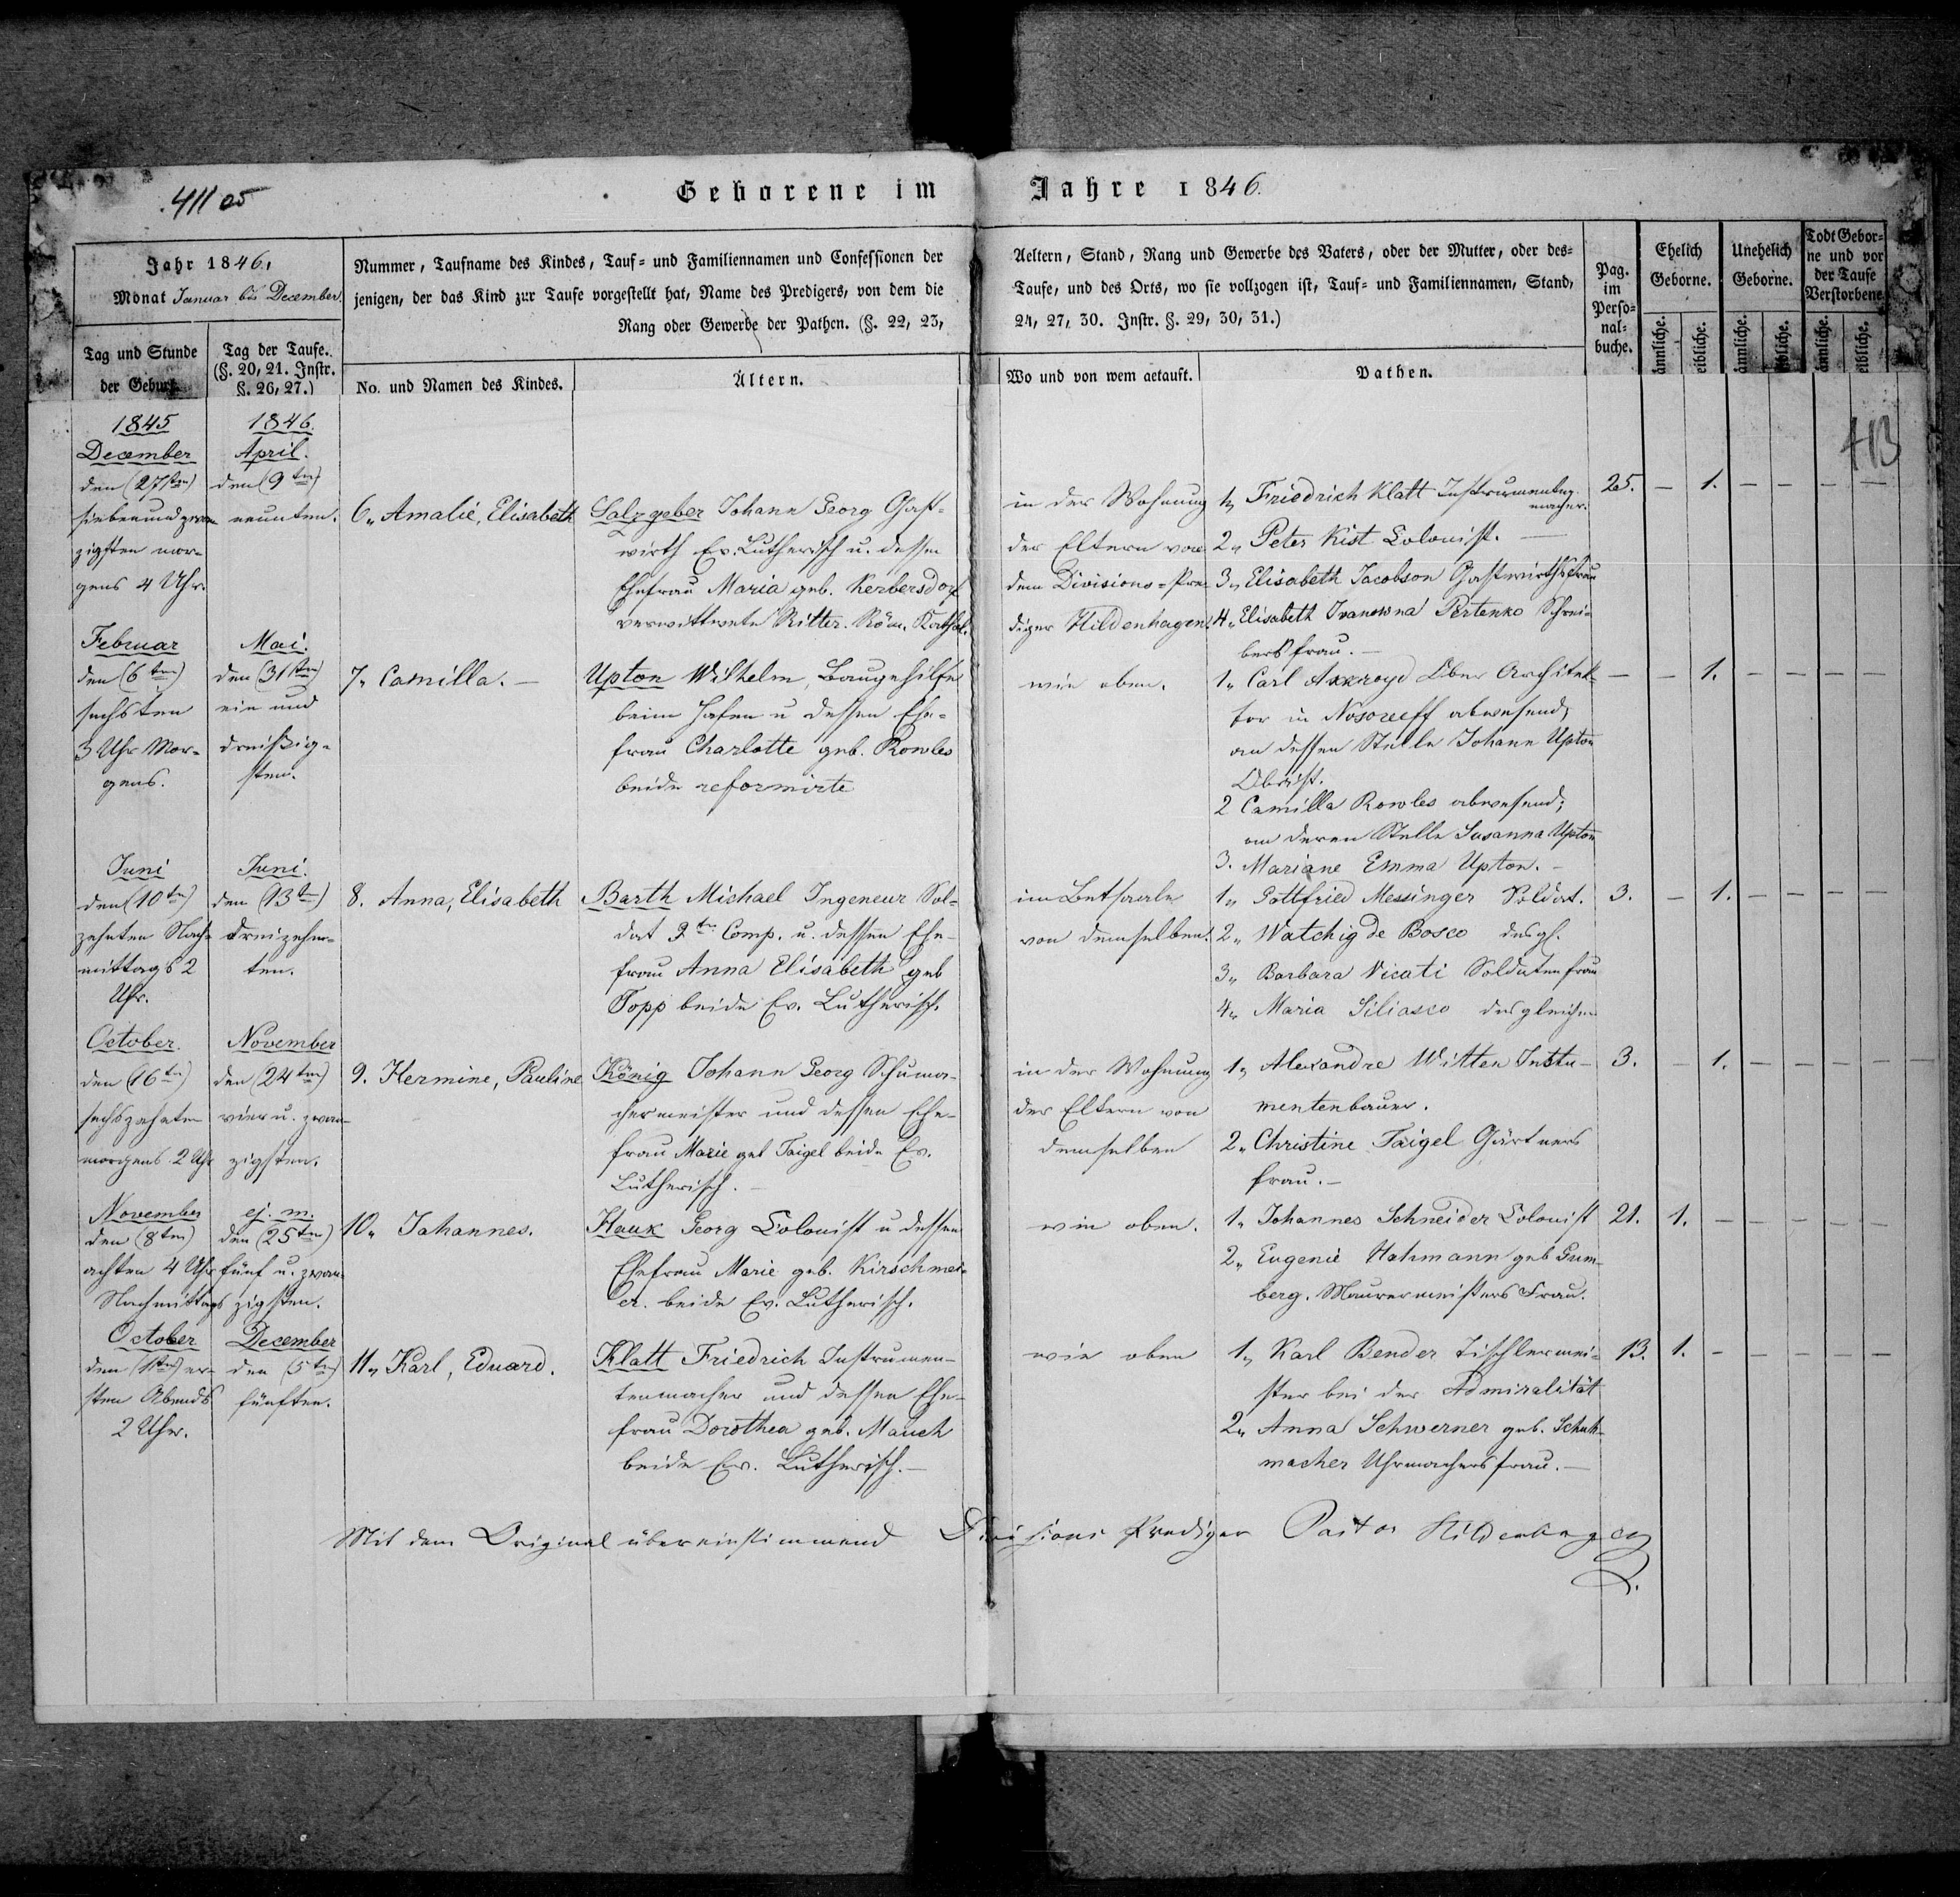 411 05
Geborene im Jahre 1846.
Jahr 1846,
Monat Januar bis December.
Nummer, Taufname des Kindes, Tauf- und Familiennamen und Confessionen der
Aeltern, Stand, Rang und Gewerbe des Vaters, oder der Mutter, oder des-
jenigen, der das Kind zur Taufe vorgestellt hat, Name des Predigers, von dem die
Taufe, und des Orts, wo sie vollzogen ist, Tauf- und Familiennamen, Stand,
Rang oder Gewerbe der Pathen. (§. 22, 23,
24, 27, 30. Instr. §. 29, 30, 31.)
Pag.
im
Perso-
nal-
buche.
Ehelich
Geborne.
Unehelich
Geborne.
Todt Gebor-
ne und vor
der Taufe
Verstorbene
ännliche.
eibliche.
ännliche.
ibliche.
ännliche.
eibliche.
Tag und Stunde
der Geburt.
Tag der Taufe.
(§. 20, 21. Instr.
§. 26, 27.)
No. und Namen des Kindes.
Ältern.
Wo und von wem getauft.
Pathen.
413
1845
December
den (27sten)
siebenundzwan
zigsten mor-
gens 4 Uhr.
1846.
April.
den (9ten)
neunten.
6„ Amalie, Elisabeth
Salzgeber Johann Georg Gast-
wirth Ev. Lutherisch u. dessen
Ehefrau Maria geb. Kerbersdorf
verwittwete Ritter. Röm. Kathol.
in der Wohnung
der Eltern von
dem Divisions-Pre
diger Hildenhagen.
1„ Friedrich Klatt Instrumenten
macher.
2„ Peter Kist Colonist.
3„ Elisabeth Jacobson Gastwirthsfrau
4„ Elisabeth Ivanowna Pertenko Schrei-
bers frau. —
25. — 1. — — — —
Februar
den (6ten)
sechsten
3 Uhr Mor-
gens.
Mai.
den (31sten)
ein und
dreißig-
sten.
7„ Camilla. —
Upton Wilhelm, Baugehilfe
beim Hafen u dessen Ehe-
frau Charlotte geb. Rowles
beide reformirte
wie oben.
1„ Carl Akkroyd Ober Architek-
tor in abwesend,
an dessen Stelle Johann Upton
Obrist.
2 Camilla Rowles abwesend;
an deren Stelle Susanna Upton
3. Mariane Emma Upton. —
— — 1. — — — —
Juni
den (10ten)
zehnten Nach-
mittags 2
Uhr.
Juni.
den (13t)
dreizehn-
ten.
8. Anna, Elisabeth
Barth Michael Ingeneur Sol-
dat 2ten Comp. u. dessen Ehe-
frau Anna Elisabeth geb
Topp beide Ev. Lutherisch.
im Betsaale
von demselben.
1„ Gottfried Messinger Soldat.
2„ Watchig de Bosco desgl.
3„ Barbara Vicati Soldatenfrau
4„ Maria Siliasco desgleichen
3. — 1. — — — —
October.
den (16ten)
sechszehnten
morgens 2 Uhr
November
den (24ten)
vier u. zwan-
zigsten.
9. Hermine, Pauline
König Johann Georg Schuma-
chermeister und dessen Ehe-
frau Marie geb Taigel beide Ev.
Lutherisch. —
in der Wohnung
der Eltern von
demselben
1„ Alexandre Witten Instu-
mentenbauer.
2„ Christine Taigel Gärtners
frau. —
3. — 1. — — — — —
November
den (8ten)
achten 4 Uhr
Nachmittags
ej. m.
den (25ten)
fünf u. zwan-
zigsten.
10„ Johannes.
Hauk Georg Colonist u dessen
Ehefrau Marie geb. Kirschmei-
er. beide Ev. Lutherisch.
wie oben.
1„ Johannes Schneider Colonist
2„ Eugenie Hahmann geb Gum-
berg. Maurermeisters Frau.
21. 1. — — — — —
October
den (1ten) er-
sten Abends
2 Uhr.
December
den (5ten)
fünften.
11„ Karl, Eduard.
Klatt Friedrich Instrumen-
tenmacher und dessen Ehe-
frau Dorothea geb. Mauch
beide Ev. Lutherisch. —
wie oben
1„ Karl Bender Tischlermei-
ster bei der Admiralität
2„ Anna Schwerner geb. Schuh-
macher Uhrmachersfrau. —
13. 1. — — — — —
Mit dem Original übereinstimmend Divisions Prediger Pastor Hildenhagen